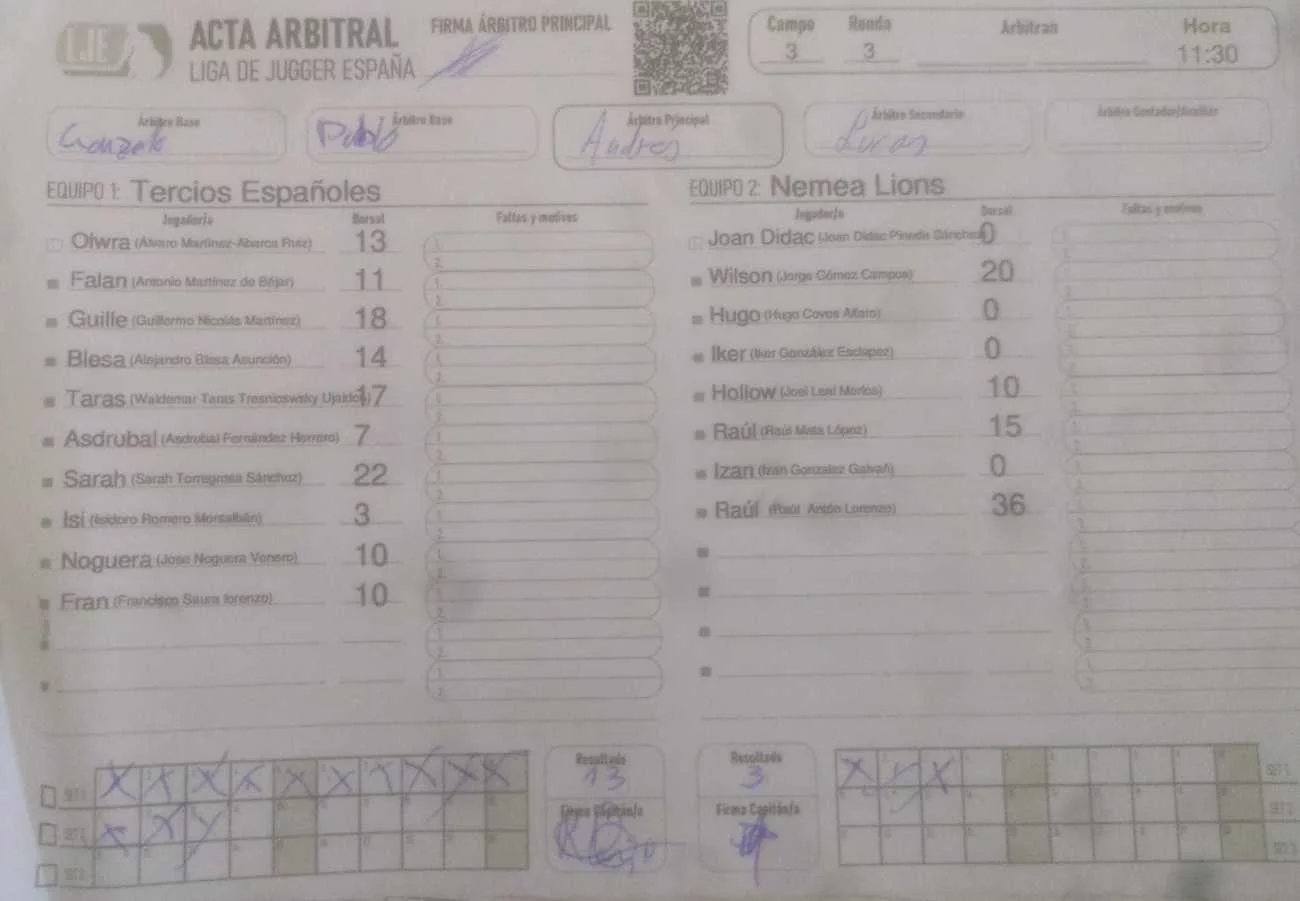 LJE ACTA ARBITRAL FIRMA ÁRBITRO PRINCIPAL
LIGA DE JUGGER ESPAÑA
Campo Ronda Arbitran Hora
3 3 11:30
Árbitro Base Árbitro Base Árbitro Principal Árbitro Secundario Árbitro Contador/Auxiliar
Gonzalo Pablo Andres Lucas
EQUIPO 1: Tercios Españoles
Jugador/a Dorsal Faltas y motivos
Olwra (Álvaro Martínez-Abarca Ruiz) 13
Falan (Antonio Martínez de Béjar) 11
Guille (Guillermo Nicolás Martínez) 18
Blesa (Alejandro Blesa Asunción) 14
Taras (Waldemar Taras 17
Asdrubal (Asdrubal Fernández Herrero) 7
Sarah (Sarah Torregrosa Sánchez) 22
Isi (Isidoro Romero Montalbán) 3
Noguera (Jose Noguera Venero) 10
Fran (Francisco Saura lorenzo) 10
EQUIPO 2: Nemea Lions
Jugador/a Dorsal Faltas y motivos
Joan Didac (Joan Didac Pineda Sánchez) 0
Wilson (Jorge Gómez Campos) 20
Hugo (Hugo Coves Alfaro) 0
Iker (Iker González Esclapez) 0
Hollow (Joel Leal Morlos) 10
Raúl (Raúl Mata López) 15
Izan (Izan Gonzalez Galvañ) 0
Raúl (Raúl Antón Lorenzo) 36
SET 1
SET 2
SET 3
Resultado
13
Firma Capitán/a
Resultado
3
Firma Capitán/a
SET 1
SET 2
SET 3